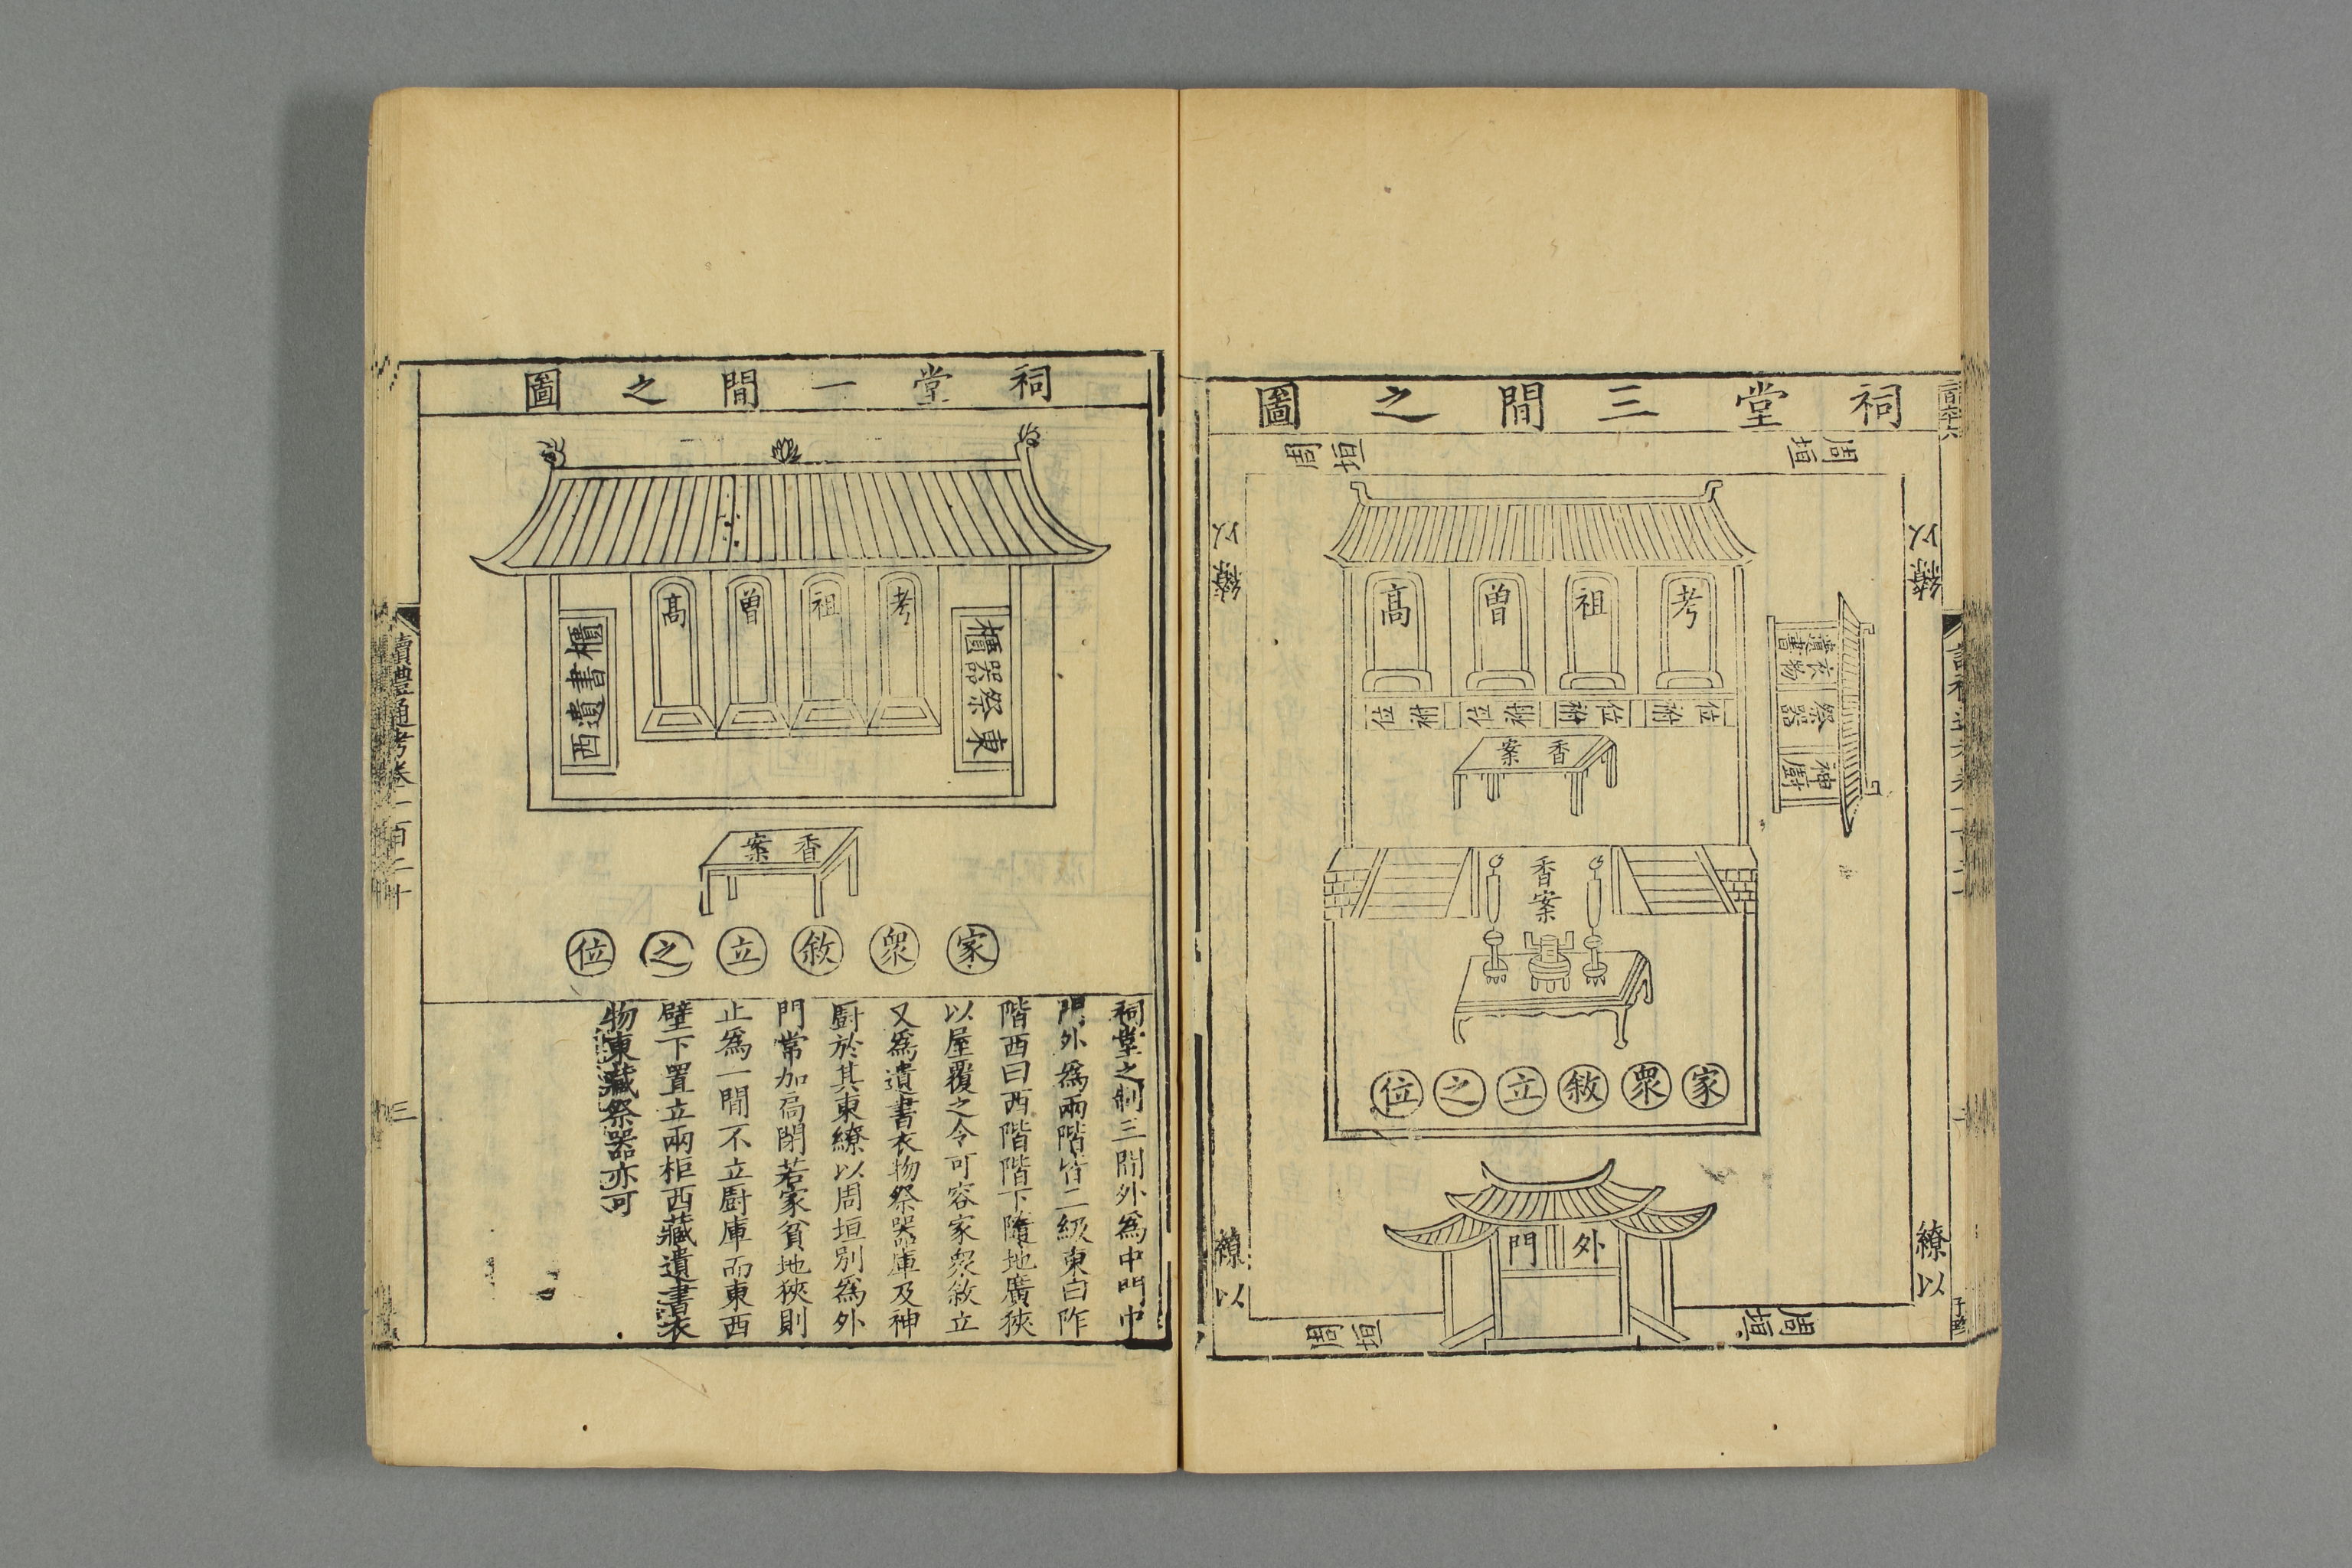 祠堂三間之圖
周垣
周垣
繚以
繚以
高
曾
祖
考
祔位
祔位
祔位
祔位
香案
遺書衣物
祭器
神廚
香案
家衆敘立之位
外門
繚以
繚以
周垣
周垣
祠堂一間之圖
考
祖
曾
高
東祭器櫃
西遺書櫃
香案
家衆敘立之位
祠堂之制三間外爲中門中
門外爲兩階皆二級東曰阼
階西曰西階階下隨地廣狹
以屋覆之令可容家衆敘立
又爲遺書衣物祭器庫及神
廚於其東繚以周垣別爲外
門常加扃閉若家貧地狹則
止爲一間不立廚庫而東西
壁下置立兩柜西藏遺書衣
物東藏祭器亦可
讀禮通考卷一百二十
三